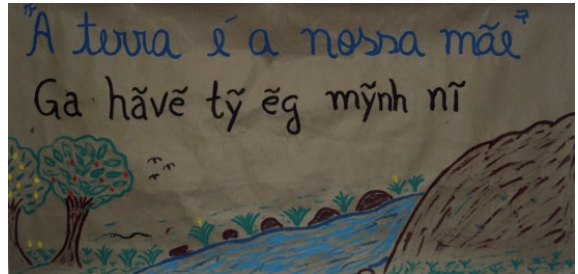 "A terra é a nossa mãe"
Ga hãvẽ tỹ ẽg mỹnh nĩ